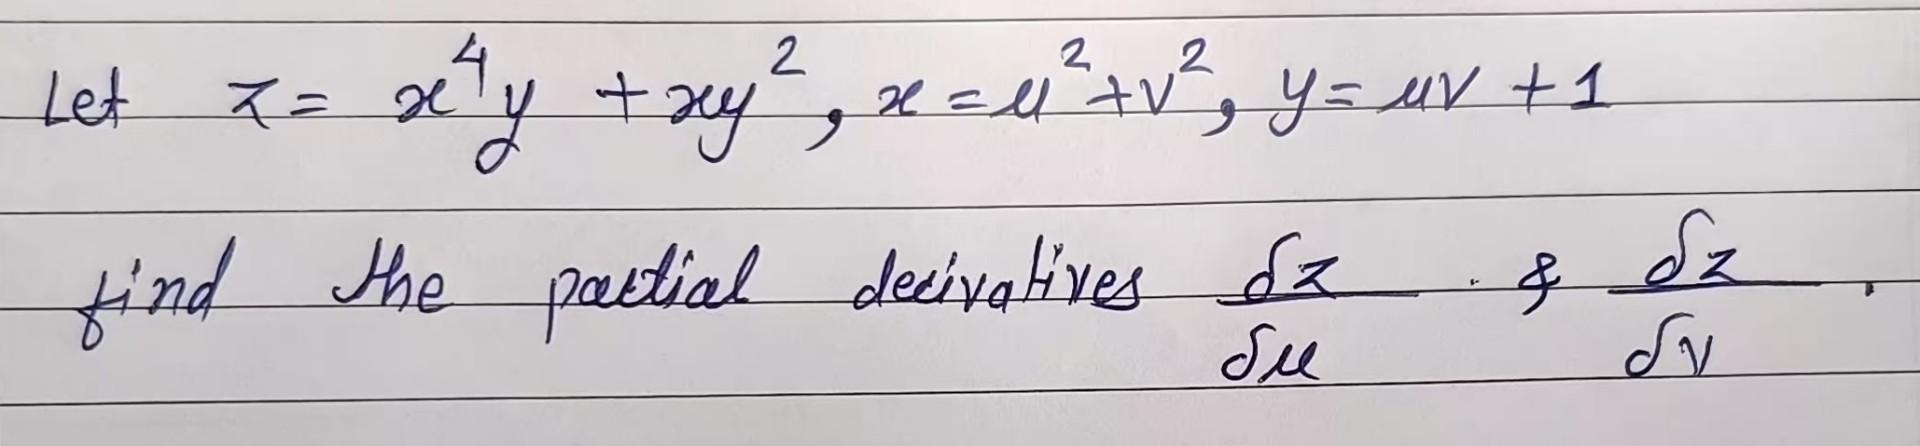 Let z = x⁴y + xy², x = u² + v², y = uv + 1
find the partial derivatives δz/δu & δz/δv.